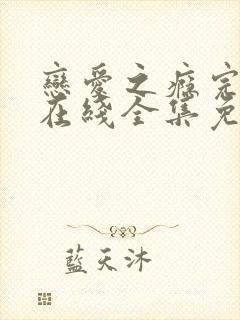 戀愛之癮完
在綫全集免
藍天沐